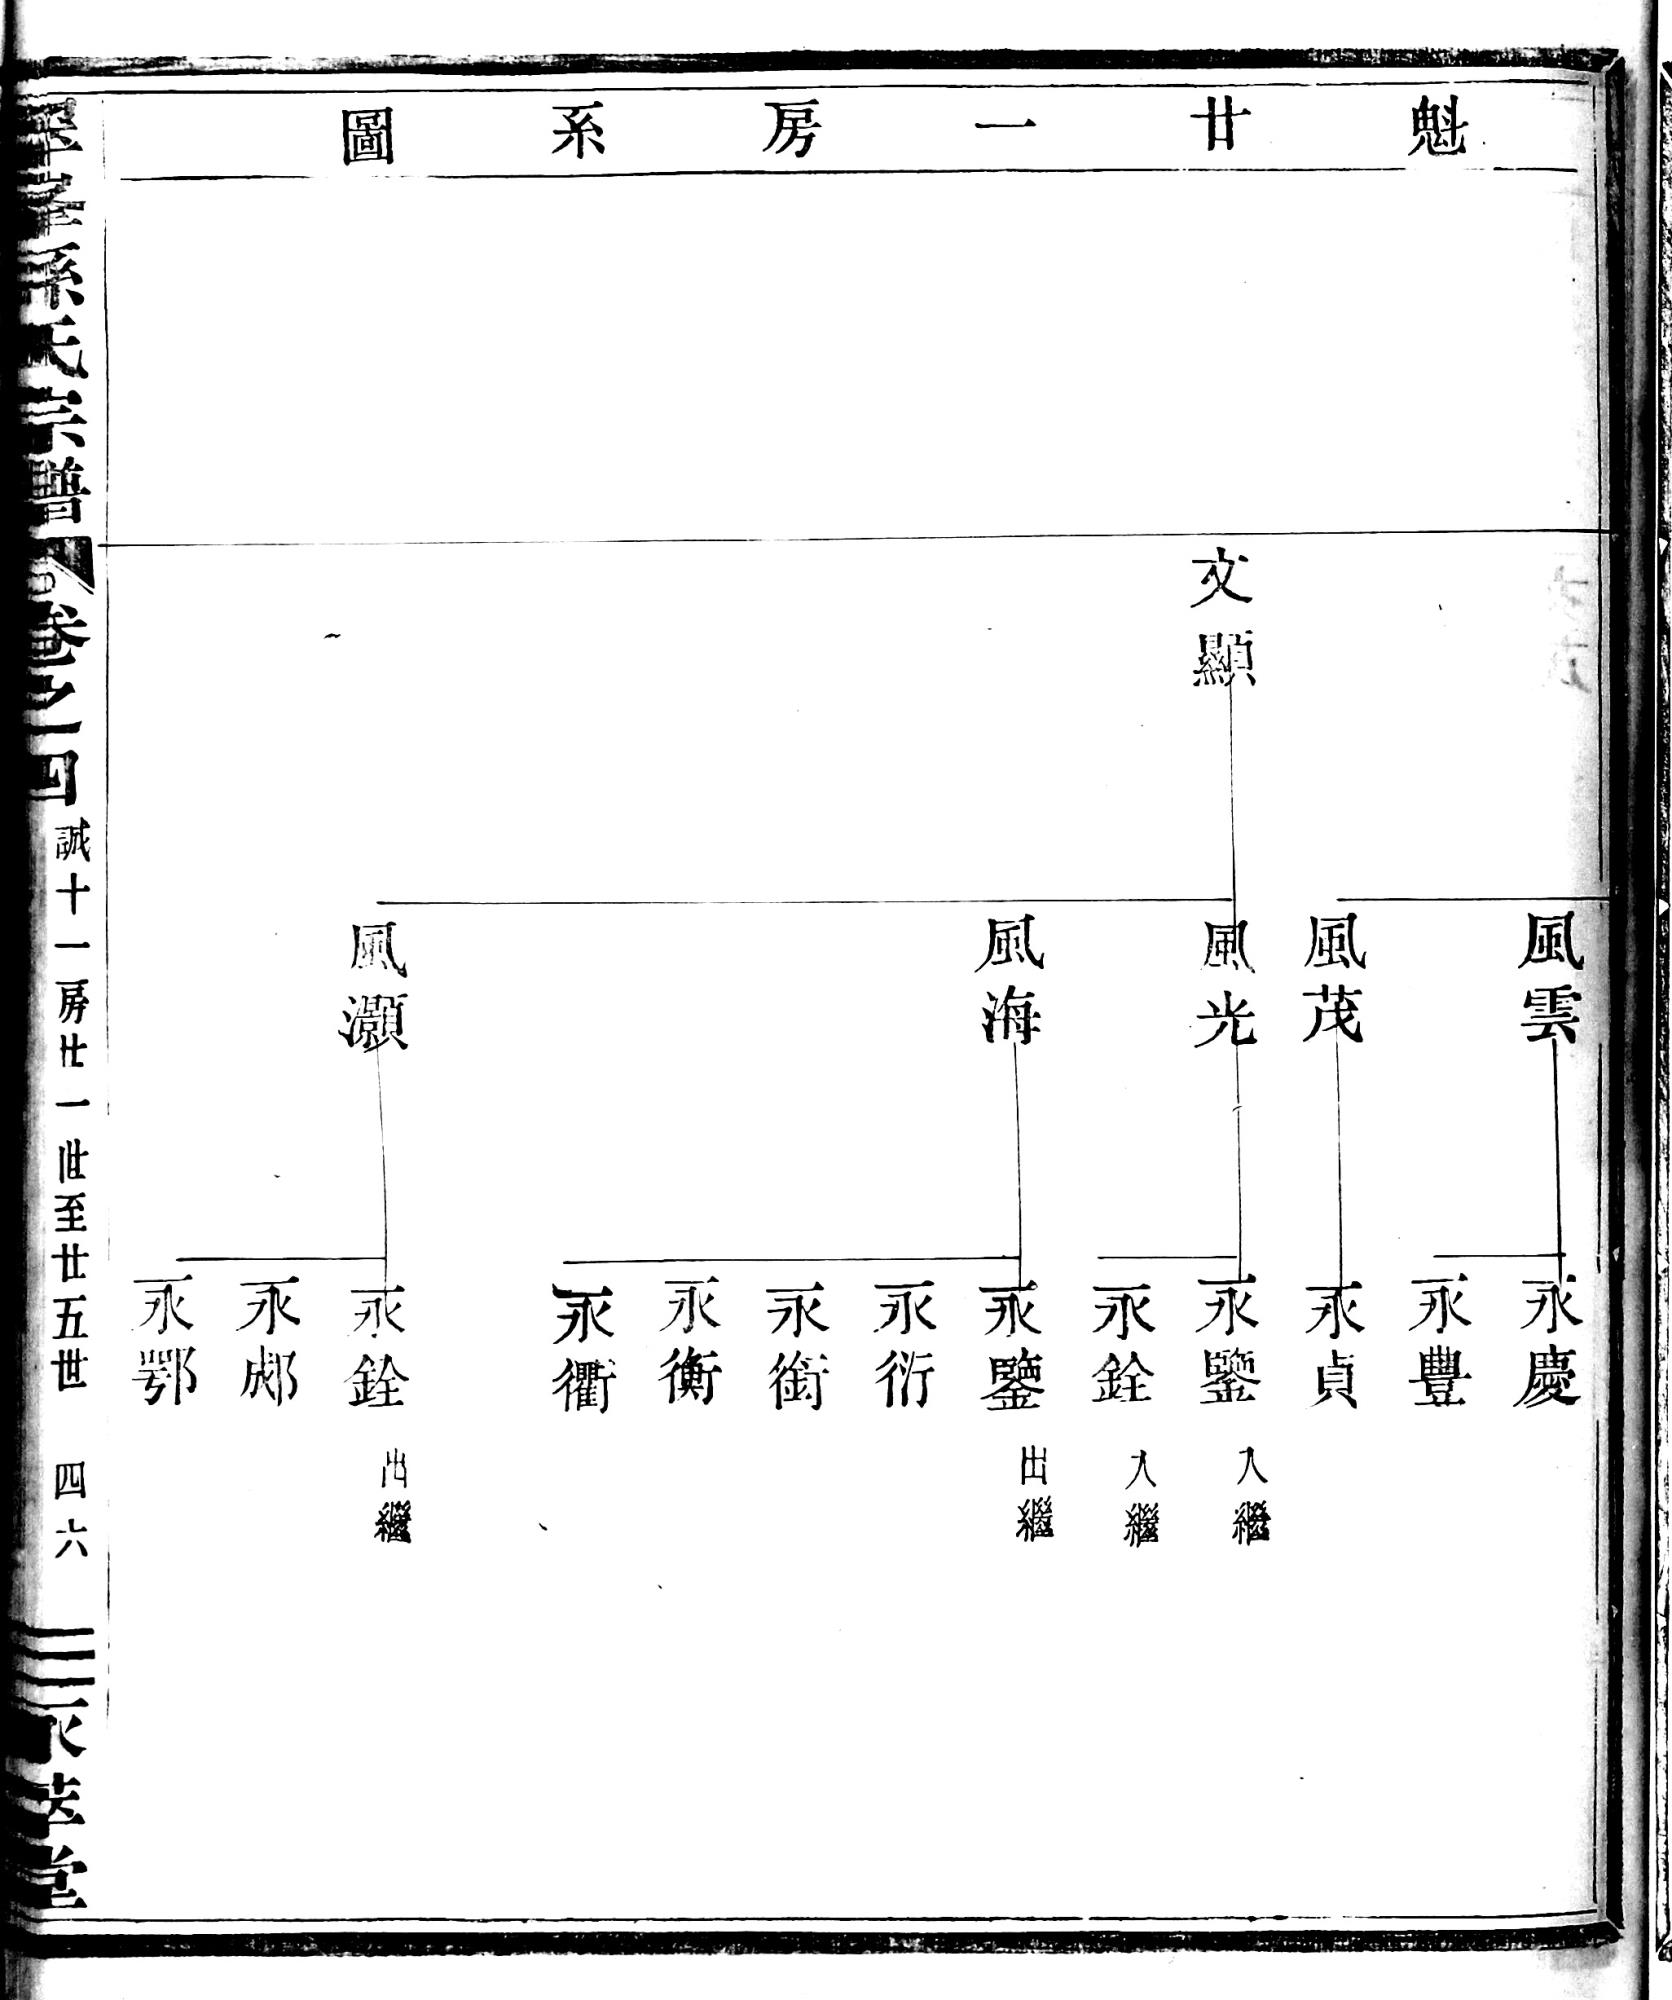 魁廿一房系圖
文顯
風雲
風茂
風光
風海
風灝
永慶
永豐
永貞
永鑒 入繼
永銓 入繼
永鑒 出繼
永衍
永銜
永衡
永衢
永銓 出繼
永郕
永鄂
孫氏宗譜
卷之四
誠十一房廿一世至廿五世
四六
永萃堂